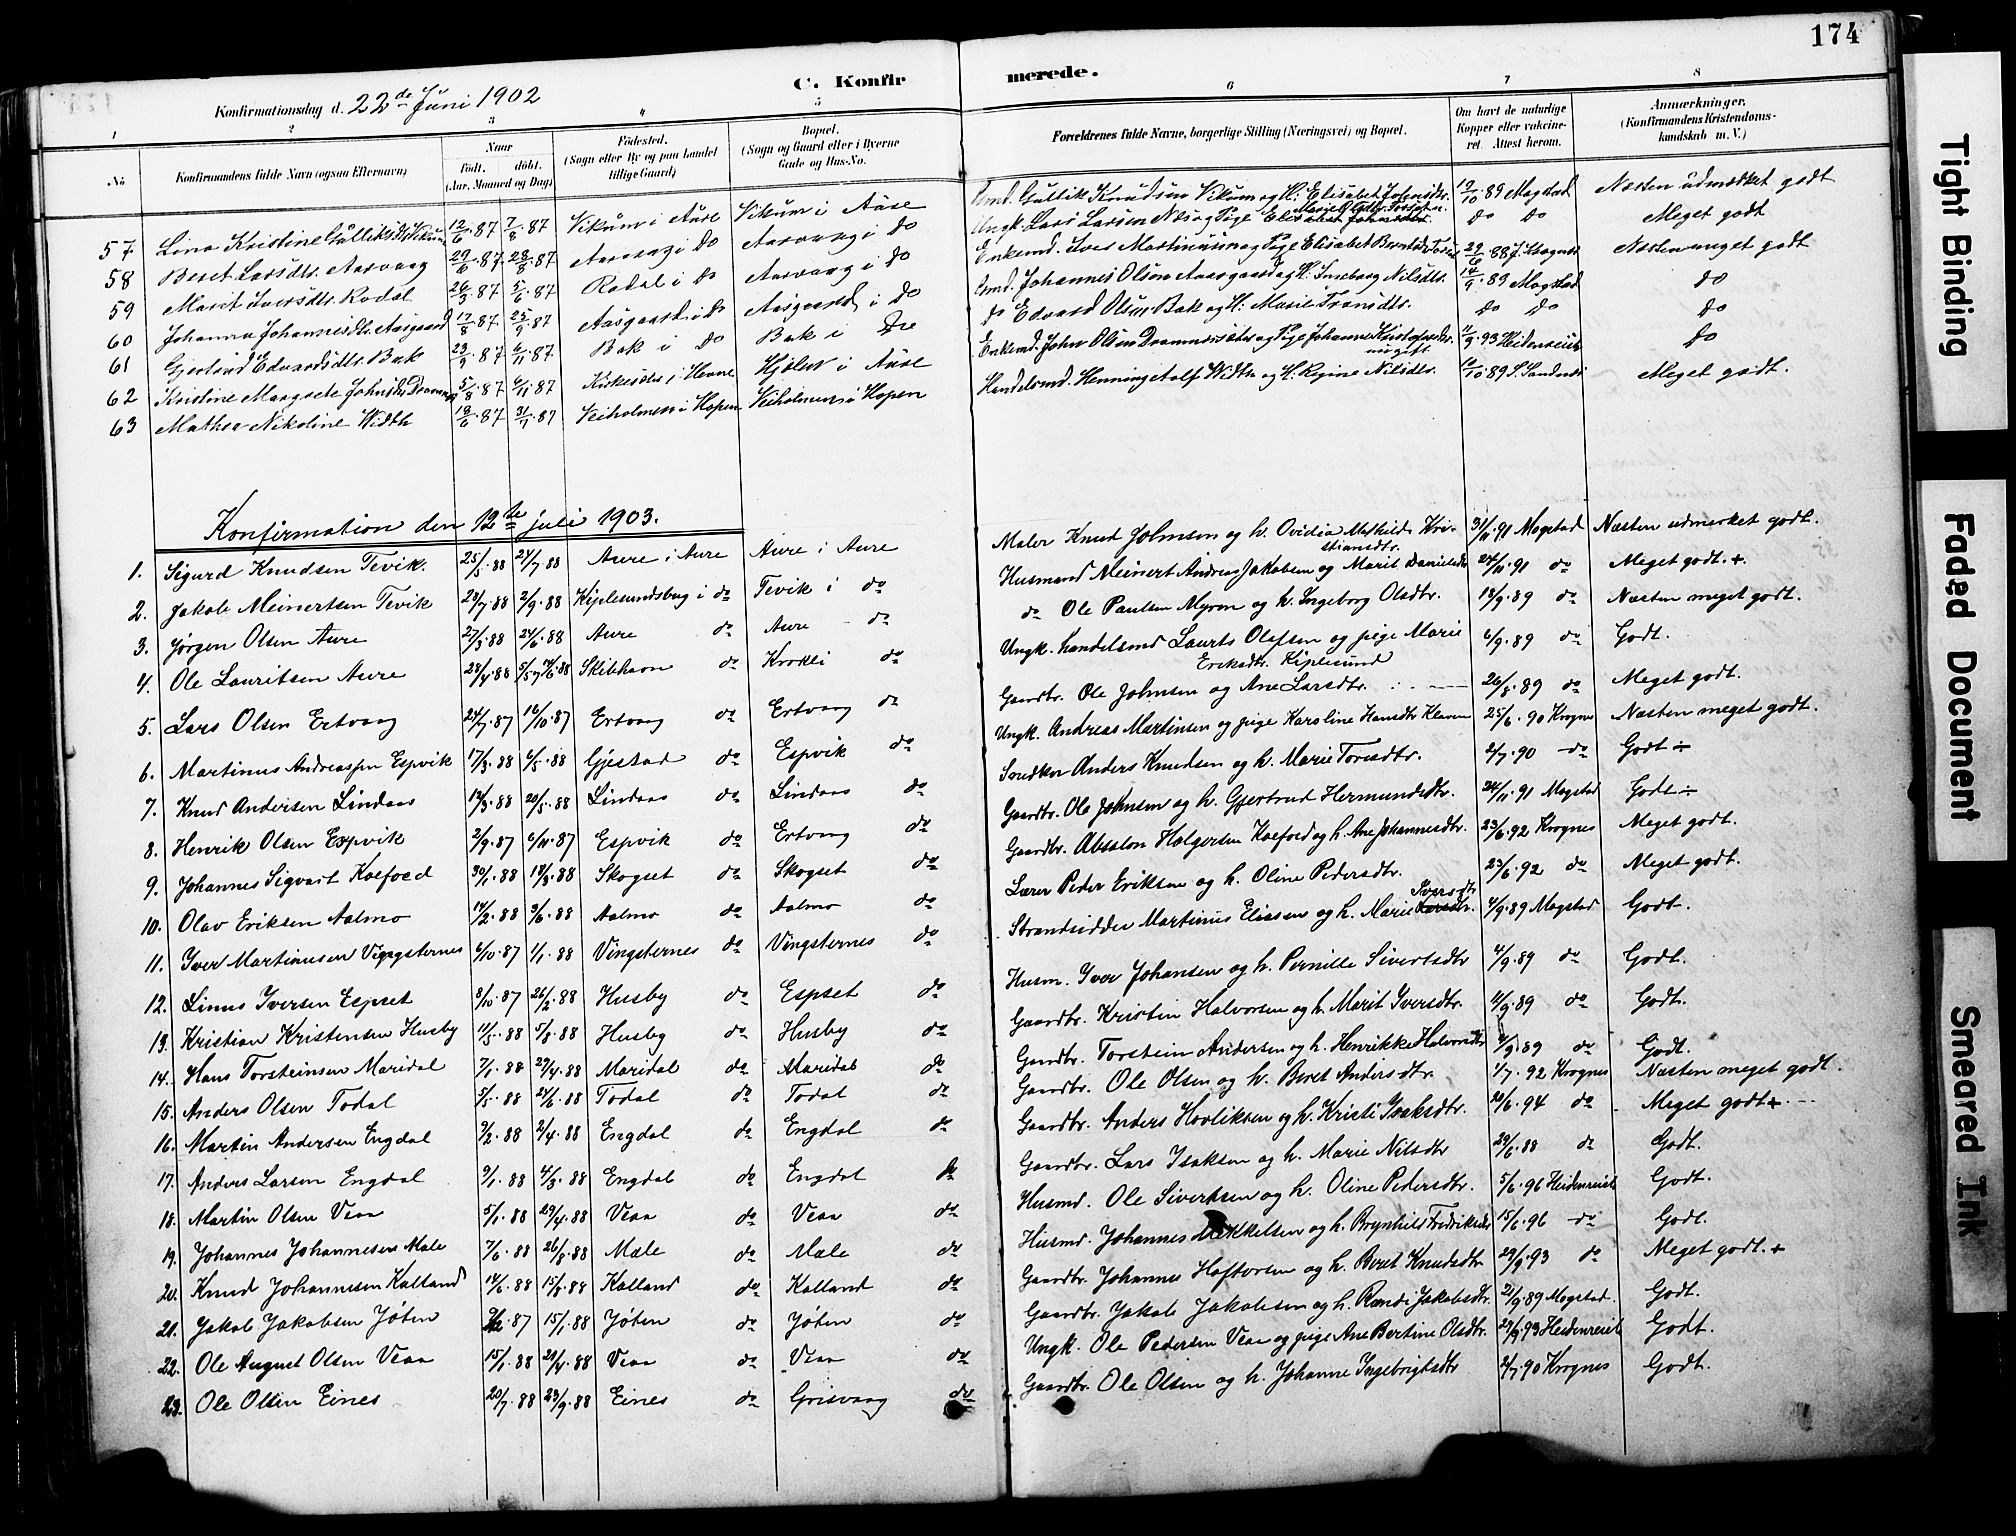 174
C. Konfirmerede.
Konfirmationsdag d. 22de Juni 1902
1 2 3 4 5 6 7 8
No
Konfirmandens fulde Navn (ogsaa Efternavn)
Naar
født. døbt.
(Aar, Maaned og Dag)
Fødested.
(Sogn eller By og paa Landet
tillige Gaard)
Bopæl.
(Sogn og Gaard eller i Byerne
Gade og Hus-No.
Forældrenes fulde Navne, borgerlige Stilling (Næringsvei) og Bopæl.
Om havt de naturlige
Kopper eller vakcine-
ret. Attest herom.
Anmærkninger,
(Konfirmandens Kristendoms-
kundskab m. V.)
57 Lina Kristine Gulliksdtr Vikum 12/6 87 7/8 87 Vikum i Aure Vikum i Aure Gullik Knudsen Vikum og H. Elisabet Johnsdtr. 19/10 89 Magstad Næsten udmærket godt
58 Beret Larsdtr. Aarvaag 29/6 87 28/8 87 Aarvaag i do Aarvaag i do Ungk. Lars Larsen og Pige do do Meget godt
59 Maret Iversdtr. Rodal 26/3 87 5/6 87 Rodal i do Aarvaag i do Enkemd. Iver Martinusen og Pige Elisabet 29/6 88 Næsten meget godt
60 Johanna Johannesdtr. Aasgaard 17/8 87 25/9 87 Aasgaard i do Aasgaard i do Johannes Olsen Aasgaard og H. Ingeborg Nilsdtr. 14/9 89 Magstad do
61 Gjertrud Edvardsdtr. Bak 23/9 87 6/11 87 Bak i do Bak i do do Edvard Olsen Bak og H. Marit do do do
62 Kristine Margrete Johnsdtr. 5/8 87 6/11 87 i Hevne Hjelm i Aure Enkemd. John Olsen og Pige Johanna Kristofersdtr. 11/9 93 Heidenreich do
63 Mathea Nikoline Width 18/6 87 31/7 87 Veiholmen i Hopen Veiholmen i Hopen Handelsmd. Henning Adolf Width og H. Regine Nilsdtr. 16/10 89 Meget godt.
Konfirmation den 12te juli 1903.
1. Sigurd Knudsen Tevik. 25/5 88 24/7 88 Aure i Aure Aure i Aure Maler Knud Johnsen og h. Ovidia Mathilde Kri- 31/11 91 Magstad Næsten udmerket godt.
stiansdtr.
2. Jakob Meinertsen Tevik 28/7 88 2/9 88 Kiplesundsbug i do Tevik i do Husmand Meinert Andreas Jakobsen og Marit Danielsdtr 24/11 91 do Meget godt. +
3. Jørgen Olsen Aure 27/3 88 24/6 88 Aure do Aure do do Ole Paulsen Myren og h. Ingeborg Olsdtr. 18/9 89 do Næsten meget godt.
4. Ole Lauritsen Aure 28/4 88 88 Skibhavn do Krokli do Ungk. handelsmd Laurits Olafsen og pige Marie 6/9 89 do Godt.
Eriksdtr. Kiplesund
5. Lars Olsen Ertvaag 24/7 87 16/10 87 Ertvaag do Ertvaag do Gaardbr. Ole Johnsen og Ane Larsdtr. 26/8 89 do Meget godt.
6. Martinus Andreassen Espvik 17/3 88 6/5 88 Gjestad do Espvik do Ungk. Andreas Martinsen og pige Karoline Hansdtr 25/6 90 Krognes Næsten meget godt.
7. Knud Andersen Lindaas 12/3 88 20/5 88 Lindaas do Lindaas do Anders Knudsen og h. Marie Toresdtr. 2/7 90 do Godt ÷
8. Henrik Olsen Espvik 2/9 87 6/11 87 Espvik do Ertvaag do Gaardbr. Ole Johnsen og h. Gjertrud Hermundsdtr. 24/11 91 Magstad Godt ÷
9. Johannes Sigvart Koefoed 30/1 88 18/3 88 Skogset do Skogset do Gaardbr. Absalon Holgersen Koefoed og h. Ane Johannesdtr. 23/6 92 Krognes Meget godt.
10. Olav Eriksen Aalmo 14/2 88 3/6 88 Aalmo do Aalmo do Lærer Peder Eriksen og h. Oline Pedersdtr. 23/6 92 do Meget godt.
11. Iver Martinusen Vigngsternes 6/10 87 1/1 88 Vingsternes do Vingsternes do Strandsidder Martinus Eliassen og h. Marie Iversdtr. 4/9 89 Magstad Godt.
12. Linus Iversen Espset 8/10 87 26/2 88 Husby do Espset do Husm. Iver Johansen og h. Pernille Sivertsdtr 4/9 89 do Godt.
13. Kristian Kristensen Husby 11/5 88 5/8 88 Husby do Husby do Gaardbr. Kristen Halvorsen og h. Marit Iversdtr. 11/9 89 do Godt.
14. Hans Torsteinsen Maridal 7/1 88 29/4 88 Maridal do Maridal do Gaardbr. Torstein Andersen og h. Henrikke Halvorsdtr 4/9 89 do Godt.
15. Anders Olsen Todal 5/5 88 24/6 88 Todal do Todal do Gaardbr. Ole Olsen og h. Beret Andersdtr. 1/7 92 Krognes Næsten meget godt.
16. Martin Andersen Engdal 9/2 88 2/4 88 Engdal do Engdal do Gaardbr. Anders Hovliksen og h. Kristi Isaksdtr. 20/6 94 do Meget godt +
17. Anders Larsen Engdal 9/1 88 4/3 88 Engdal do Engdal do Gaardbr. Lars Isaksen og h. Marie Nilsdtr 29/6 88 do Godt.
18. Martin Olsen Vean 5/1 88 29/4 88 Vean do Vean do Husmd. Ole Sivertsen og h. Oline Pedersdtr. 5/6 96 Heidenreich Godt.
19. Johannes Johannesen Mæle 7/6 88 26/8 88 Mæle do Mæle do Husmd. Johannes Mikkelsen og h. Brynhild Fredriksdtr 15/6 96 do Godt.
20. Knud Johannesen Kalland 14/6 88 15/8 88 Kalland do Kalland do Gaardbr. Johannes Haftorsen og h. Beret Knudsdtr 29/9 93 do Meget godt. +
21. Jakob Jakobsen Jøten 87 15/1 88 Jøten do Jøten do Gaardbr. Jakob Jakobsen og h. Randi Jakobsdtr. 21/9 89 Magstad. Godt.
22. Ole August Olsen Vean 15/1 88 29/4 88 Vean do Vean do Ungk. Ole Pedersen Vean og pige Ane Bertine Olsdtr. 29/9 93 Heidenreich Godt.
23. Ole Olsen Eines 20/7 88 23/9 88 Eines do Grisvaag do Gaardbr. Ole Olsen og h. Johanne Ingebrigtsdtr 2/7 90 Krognes Godt.
Tight Binding
Faded Document
Smeared Ink